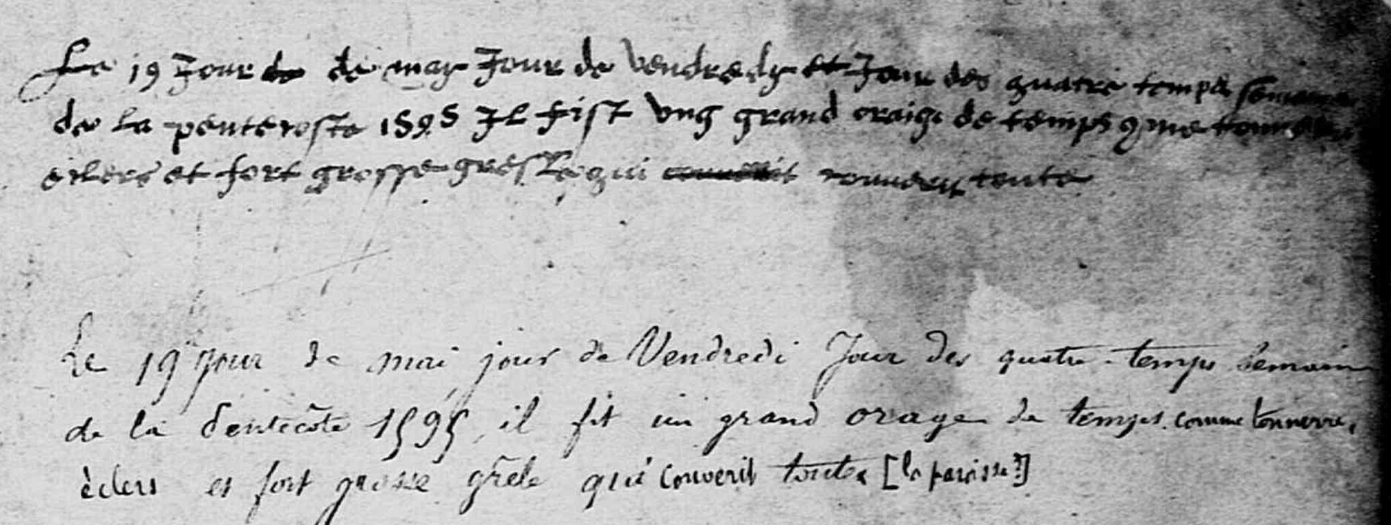 Le 19 Jour de may Jour de Vendredy et Jour des quatre temps semaine
de la penteroste 1595 Il fist Ung grand oraige de temps 9me tonnerre
eclers et fort grosse gresle qui couvrit toute
Le 19e jour de mai jour de Vendredi Jour des quatre temps Semaine
de la Pentecôte 1595, il fit un grand orage de temps comme tonnerre,
èclers et fort grosse grêle qui couvrit toute [la paroisse?]